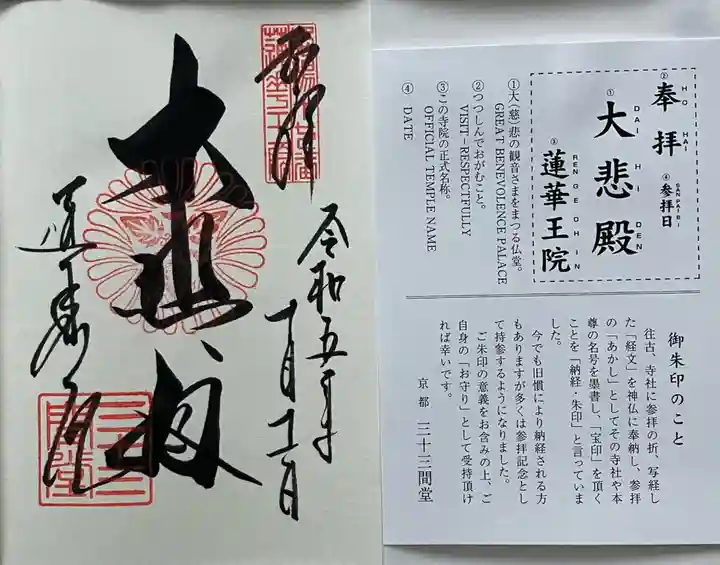 奉拝
令和五年
大悲殿
蓮華王院
② 奉拝 HO HAI
④ 参拝日 SAN PAI BI
① 大悲殿 DAI HI DEN
③ 蓮華王院 REN GE OH IN
①大(慈)悲の観音さまをまつる仏堂。
GREAT BENEVOLENCE PALACE
②つつしんでおがむこと。
VISIT−RESPECTFULLY
③この寺院の正式名称。
OFFICIAL TEMPLE NAME
④ DATE
御朱印のこと
往古、寺社に参拝の折、写経し
た「経文」を神仏に奉納し、参拝
の「あかし」としてその寺社や本
尊の名号を墨書し、「宝印」を頂く
ことを「納経・朱印」と言っていま
した。
今でも旧慣により納経される方
もありますが多くは参拝記念とし
て持参するようになりました。
ご朱印の意義をお含みの上、ご
自身の「お守り」として受持頂け
れば幸いです。
京都 三十三間堂